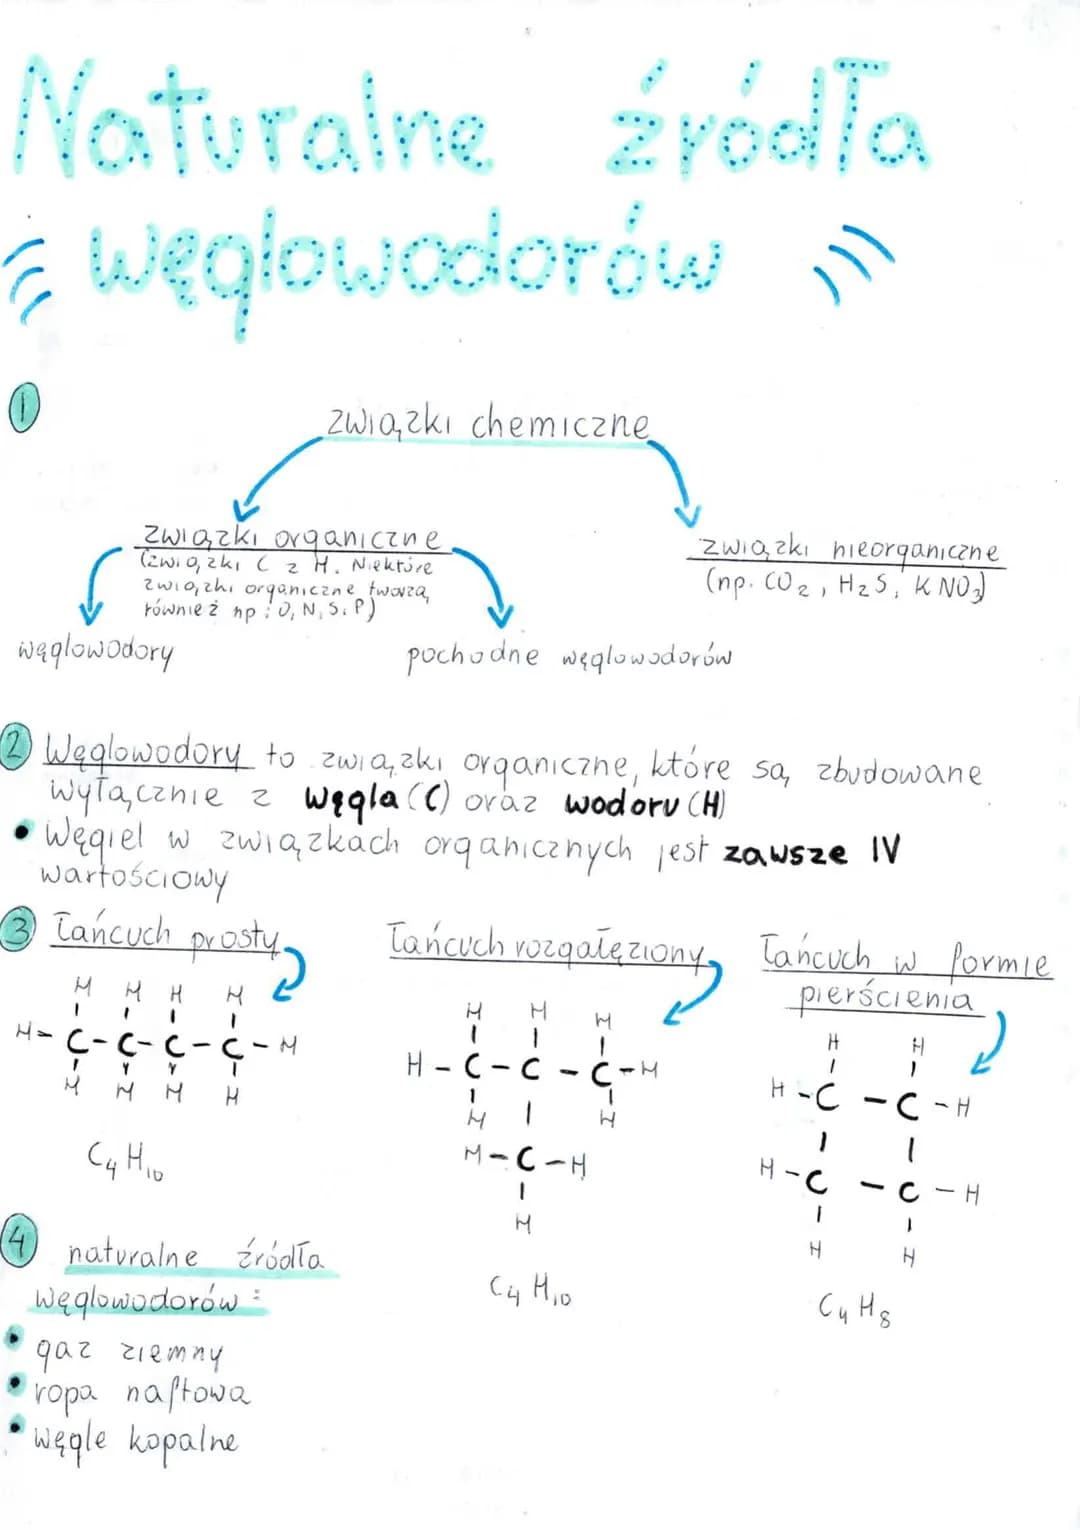 Naturalne źródła
węglowodorów
1
związki chemiczne
związki organiczne
(związki C z H. Niektóre
związki organiczne tworzą
również np: O, N, S, P)
związki nieorganiczne
(np. CO2, H2S, KNO3)
węglowodory
pochodne węglowodorów
2 Węglowodory to związki organiczne, które są zbudowane
wyłącznie z węgla (C) oraz wodoru (H)
• Węgiel w związkach organicznych jest zawsze IV
wartościowy
3 Łańcuch prosty
H H H H
H-C-C-C-C-H
H H H H
C4H10
Łańcuch rozgałęziony
H H H
H-C-C-C-H
H H
H-C-H
H
C4H10
Łańcuch w formie
pierścienia
H H
H-C-C-H
H-C-C-H
H H
C4H8
4 naturalne źródła
węglowodorów:
• gaz ziemny
• ropa naftowa
• węgle kopalne